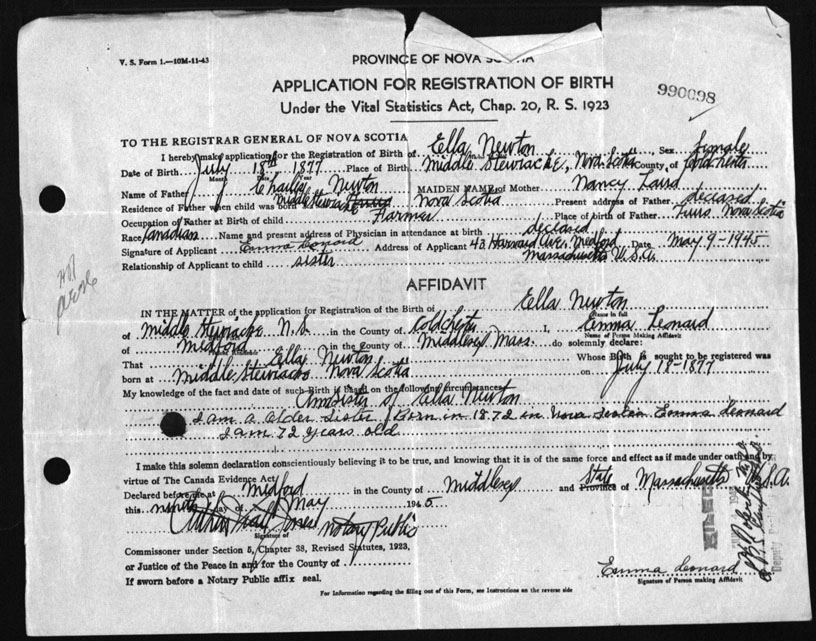 V. S. Form 1.—10M-11-43
PROVINCE OF NOVA SCOTIA
APPLICATION FOR REGISTRATION OF BIRTH
Under the Vital Statistics Act, Chap. 20, R. S. 1923
990098
TO THE REGISTRAR GENERAL OF NOVA SCOTIA
I hereby make application for the Registration of Birth of Ella Newton Sex female
Date of Birth July 18th 1877 Place of Birth Middle Stewiacke, Nova Scotia County of Colchester
Name of Father Charles Newton MAIDEN NAME of Mother Nancy Laird
Residence of Father when child was born Middle Stewiacke Nova Scotia Present address of Father deceased
Occupation of Father at Birth of child Farmer Place of birth of Father Truro Nova Scotia
Race Canadian Name and present address of Physician in attendance at birth deceased
Signature of Applicant Emma Leonard Address of Applicant 43 Harvard Ave, Medford Date May 9-1945
Massachusetts U.S.A.
Relationship of Applicant to child sister
AFFIDAVIT
IN THE MATTER of the application for Registration of the Birth of Ella Newton
Name in full
of Middle Stewiacke N.S. in the County of Colchester I, Emma Leonard
Name of Person Making Affidavit
of Medford in the County of Middlesex Mass. do solemnly declare:
That Ella Newton Whose Birth is sought to be registered was
born at Middle Stewiacke Nova Scotia on July 18-1877
My knowledge of the fact and date of such Birth is based on the following circumstances
sister of Ella Newton
I am a older sister, Born in 1872 in Nova Scotia Emma Leonard
I am 72 years old
I make this solemn declaration conscientiously believing it to be true, and knowing that it is of the same force and effect as if made under oath and by
virtue of The Canada Evidence Act
Declared before me at Medford in the County of Middlesex and State Province of Massachusetts U.S.A.
this ninth day of May 1945
Notary Public
Signature of
Commissoner under Section 5, Chapter 38, Revised Statutes, 1923,
or Justice of the Peace in and for the County of
If sworn before a Notary Public affix seal.
Emma Leonard
Signature of Person making Affidavit
For Information regarding the filling out of this Form, see Instructions on the reverse side